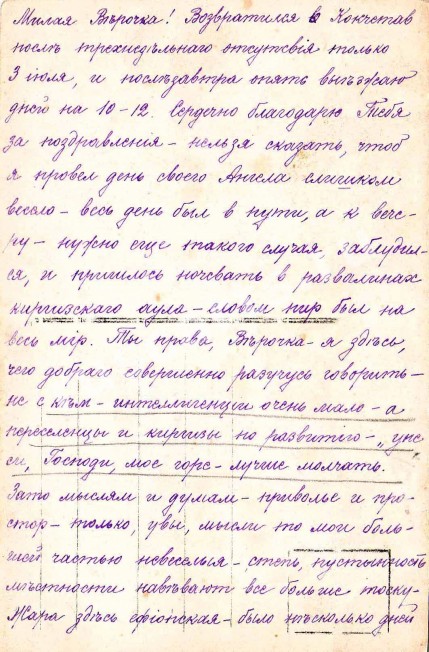 Милая Вѣрочка! Возвратился в Кокчетав
послѣ трехнедѣльнаго отсутствія только
3 іюля, и послѣзавтра опять выѣзжаю
дней на 10-12. Сердечно благодарю Тебя
за поздравления - нельзя сказать, чтоб
я провел день своего Ангела слишком
весело - весь день был в пути, а к вече-
ру - нужно еще такого случая, заблудил-
ся, и пришлось ночевать в развалинах
киргизскаго аула - словом пир был на
весь мір. Ты права, Вѣрочка - я здѣсь,
чего добраго совершенно разучусь говорить -
не с кѣм - интеллигенции очень мало - а
переселенцы и киргизы по развитію - „унe
си, Господи, мое горе - лучше молчать.
Зато мыслям и думам - приволье и про-
стор - только, увы, мысли то мои боль-
шей частью невеселыя - степь, пустынность
мѣстности навѣвают все больше тоску -
Жара здѣсь эфіопская - было нѣсколько дней